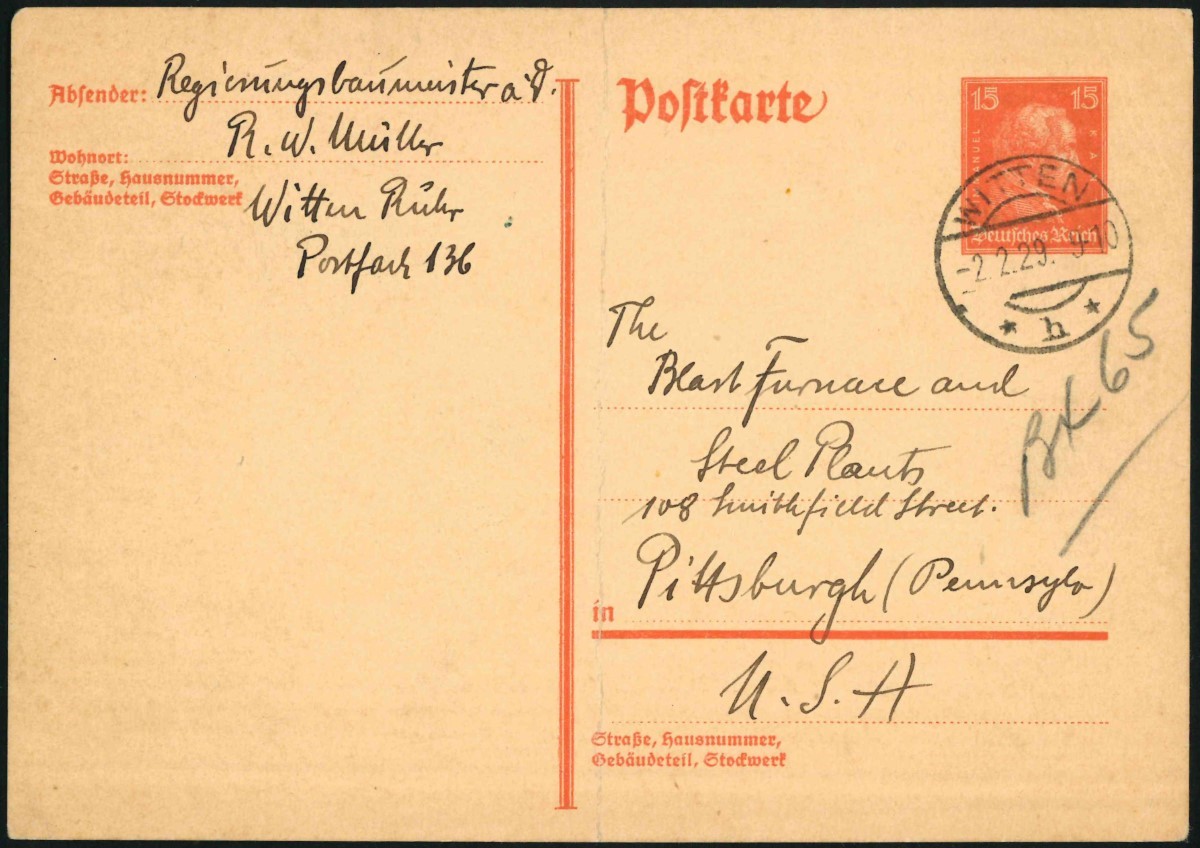 Absender: Regierungsbaumeister a.D.
R. W. Müller
Wohnort:
Straße, Hausnummer,
Gebäudeteil, Stockwerk
Witten Ruhr
Postfach 136
Postkarte
15 15
Deutsches Reich
WITTEN
-2.2.29. 9-10
* h *
The
Blast Furnace and
Steel Plants
108 Smithfield Street.
in Pittsburgh (Pennsylv)
U.S.A
Straße, Hausnummer,
Gebäudeteil, Stockwerk
65